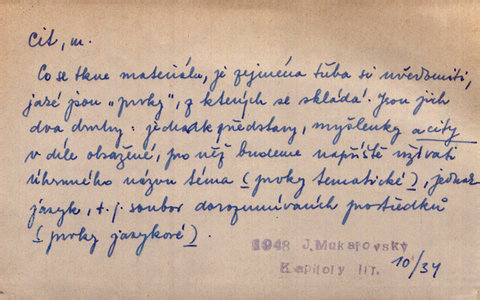 cit, m.
Co se tkne materiálu, je zejména třeba si uvědomiti,
jaké jsou „prvky", z kterých se skládá. Jsou jich
dva druhy: jednak představy, myšlenky a city
v díle obsažené, pro něž budeme napříště užívati
úhrnného názvu téma (prvky tematické), jednak
jazyk, t. j. soubor dorozumívacích prostředků
(prvky jazykové).
1948 J. Mukařovský
Kapitoly III. 10/34